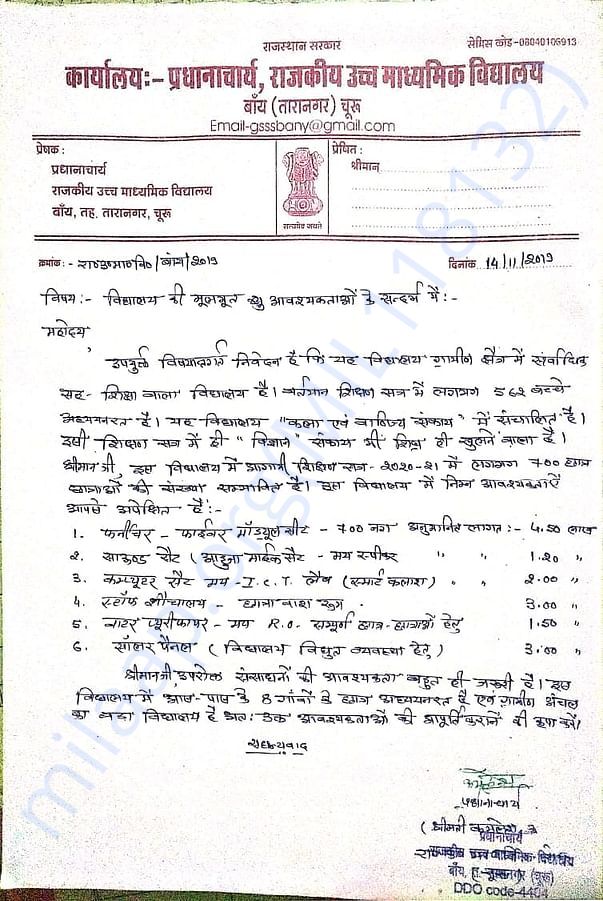 राजस्थान सरकार
सेमिस कोड-08040106913
कार्यालय:- प्रधानाचार्य, राजकीय उच्च माध्यमिक विद्यालय
बाँय (तारानगर) चूरू
Email-gsssbany@gmail.com
प्रेषक:
प्रधानाचार्य
राजकीय उच्च माध्यमिक विद्यालय
बाँय, तह. तारानगर, चूरू
सत्यमेव जयते
प्रेषित:
श्रीमान्
क्रमांक:- राउमावि/बांय/2019
दिनांक 14/11/2019
विषय:- विद्यालय की मूलभूत आवश्यकताओं के सन्दर्भ में:-
महोदय,
उपर्युक्त विषयान्तर्गत निवेदन है कि यह विद्यालय ग्रामीण क्षेत्र में सर्वाधिक
सह-शिक्षा वाला विद्यालय है। वर्तमान शिक्षण सत्र में लगभग 562 बच्चे
अध्ययनरत है। यह विद्यालय "कला एवं वाणिज्य संकाय" में संचालित है।
इसी शिक्षण सत्र में ही "विज्ञान" संकाय भी शीघ्र ही खुलने वाला है।
श्रीमानजी, इस विद्यालय में आगामी शिक्षण सत्र-2020-21 में लगभग 700 छात्र
छात्राओं की संख्या सम्भावित है। इस विद्यालय में निम्न आवश्यकताएँ
आपसे अपेक्षित है:-
1. फर्नीचर - फाईबर मॉड्यूल सीट - 700 नग अनुमानित लागत:- 4.50 लाख
2. साऊण्ड सैट (आहुजा माईक सैट - मय स्पीकर " " 1.20 "
3. कम्प्यूटर सैट मय - I.C.T. लैब (स्मार्ट कलाश) " " 2.00 "
4. स्टॉफ शौचालय - छात्रा वाश रूम. 3.00 "
5. वाटर प्यूरीफायर - मय R.O. सम्पूर्ण छात्र-छात्राओं हेतु 1.50 "
6. सॉलर पैनल (विद्यालय विधुत व्यवस्था हेतु) 3.00 "
श्रीमानजी, उपरोक्त संसाधनों की आवश्यकता बहुत ही जरूरी है। इस
विद्यालय में आस-पास के 8 गाँवों के छात्र अध्ययनरत है एवं ग्रामीण अंचल
का बडा विद्यालय है अत: उक्त आवश्यकताओं की आपूर्ति कराने की कृपा करें।
सधन्यवाद
प्रधानाचार्य
(श्रीमती
प्रधानाचार्य
राजकीय उच्च माध्यमिक विद्यालय
बाँय, त. तारानगर (चूरू)
DDO code-4404
milaap.org(MIL 118132)